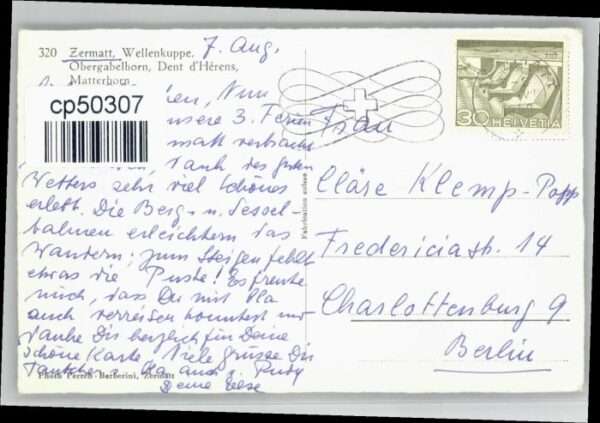 320 Zermatt, Wellenkuppe,
Obergabelhorn, Dent d'Hérens,
Matterhorn
7. Aug.
cp50307
30 HELVETIA
Nun
unsere 3. Ferien
matt verbracht
dank des guten
Wetters sehr viel Schönes
erlebt. Die Berg- u. Sessel-
bahnen erleichtern das
Wandern; zum Steigen fehlt
etwas die Puste! Es freute
mich, dass Du mit
auch verreisen konntest und
danke Dir herzlich für Deine
schöne Karte. Viele Grüsse Dir
auch
Deine Liese
Fabrication suisse
Photo Perren-Barberini, Zermatt
Frau
Cläre Klemp-Papp
Fredericiastr. 14
Charlottenburg 9
Berlin